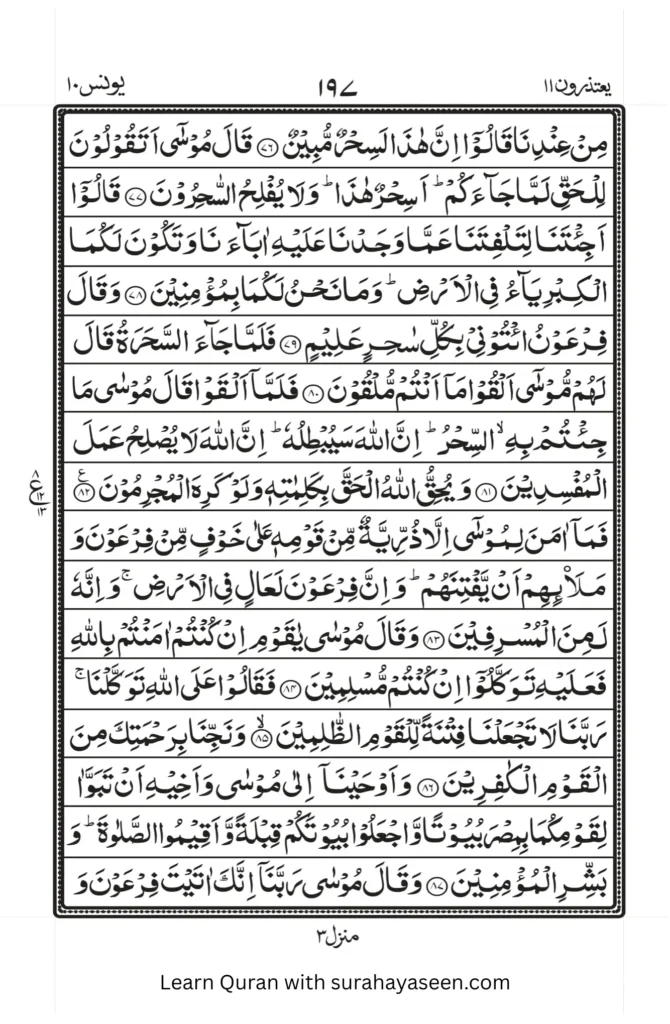 یعتذرون ۱۱
۱۹۷
یونس ۱۰
مِنْ عِنْدِنَا قَالُوْۤا اِنَّ هٰذَا لَسِحْرٌ مُّبِیْنٌ ﴿۷۶﴾ قَالَ مُوْسٰۤی اَتَقُوْلُوْنَ
لِلْحَقِّ لَمَّا جَآءَكُمْ ؕ اَسِحْرٌ هٰذَا ؕ وَلَا یُفْلِحُ السّٰحِرُوْنَ ﴿۷۷﴾ قَالُوْۤا
اَجِئْتَنَا لِتَلْفِتَنَا عَمَّا وَجَدْنَا عَلَیْهِ اٰبَآءَنَا وَتَكُوْنَ لَكُمَا
الْكِبْرِیَآءُ فِی الْاَرْضِ ؕ وَمَا نَحْنُ لَكُمَا بِمُؤْمِنِیْنَ ﴿۷۸﴾ وَقَالَ
فِرْعَوْنُ ائْتُوْنِیْ بِكُلِّ سٰحِرٍ عَلِیْمٍ ﴿۷۹﴾ فَلَمَّا جَآءَ السَّحَرَةُ قَالَ
لَهُمْ مُّوْسٰۤی اَلْقُوْا مَاۤ اَنْتُمْ مُّلْقُوْنَ ﴿۸۰﴾ فَلَمَّاۤ اَلْقَوْا قَالَ مُوْسٰی مَا
جِئْتُمْ بِهِ ۙ السِّحْرُ ؕ اِنَّ اللّٰهَ سَیُبْطِلُهٗ ؕ اِنَّ اللّٰهَ لَا یُصْلِحُ عَمَلَ
الْمُفْسِدِیْنَ ﴿۸۱﴾ وَیُحِقُّ اللّٰهُ الْحَقَّ بِكَلِمٰتِهٖ وَلَوْ كَرِهَ الْمُجْرِمُوْنَ ﴿۸۲﴾ ع
۸ ع ۱۲ ۱۳
فَمَاۤ اٰمَنَ لِمُوْسٰۤی اِلَّا ذُرِّیَّةٌ مِّنْ قَوْمِهٖ عَلٰی خَوْفٍ مِّنْ فِرْعَوْنَ وَ
مَلَا۟ئِهِمْ اَنْ یَّفْتِنَهُمْ ؕ وَاِنَّ فِرْعَوْنَ لَعَالٍ فِی الْاَرْضِ ۚ وَاِنَّهٗ
لَمِنَ الْمُسْرِفِیْنَ ﴿۸۳﴾ وَقَالَ مُوْسٰی یٰقَوْمِ اِنْ كُنْتُمْ اٰمَنْتُمْ بِاللّٰهِ
فَعَلَیْهِ تَوَكَّلُوْۤا اِنْ كُنْتُمْ مُّسْلِمِیْنَ ﴿۸۴﴾ فَقَالُوْا عَلَی اللّٰهِ تَوَكَّلْنَا ۚ
رَبَّنَا لَا تَجْعَلْنَا فِتْنَةً لِّلْقَوْمِ الظّٰلِمِیْنَ ﴿۸۵﴾ ۙ وَنَجِّنَا بِرَحْمَتِكَ مِنَ
الْقَوْمِ الْكٰفِرِیْنَ ﴿۸۶﴾ وَاَوْحَیْنَاۤ اِلٰی مُوْسٰی وَاَخِیْهِ اَنْ تَبَوَّاٰ
لِقَوْمِكُمَا بِمِصْرَ بُیُوْتًا وَّاجْعَلُوْا بُیُوْتَكُمْ قِبْلَةً وَّاَقِیْمُوا الصَّلٰوةَ ؕ وَ
بَشِّرِ الْمُؤْمِنِیْنَ ﴿۸۷﴾ وَقَالَ مُوْسٰی رَبَّنَاۤ اِنَّكَ اٰتَیْتَ فِرْعَوْنَ وَ
منزل ۳
Learn Quran with surahayaseen.com